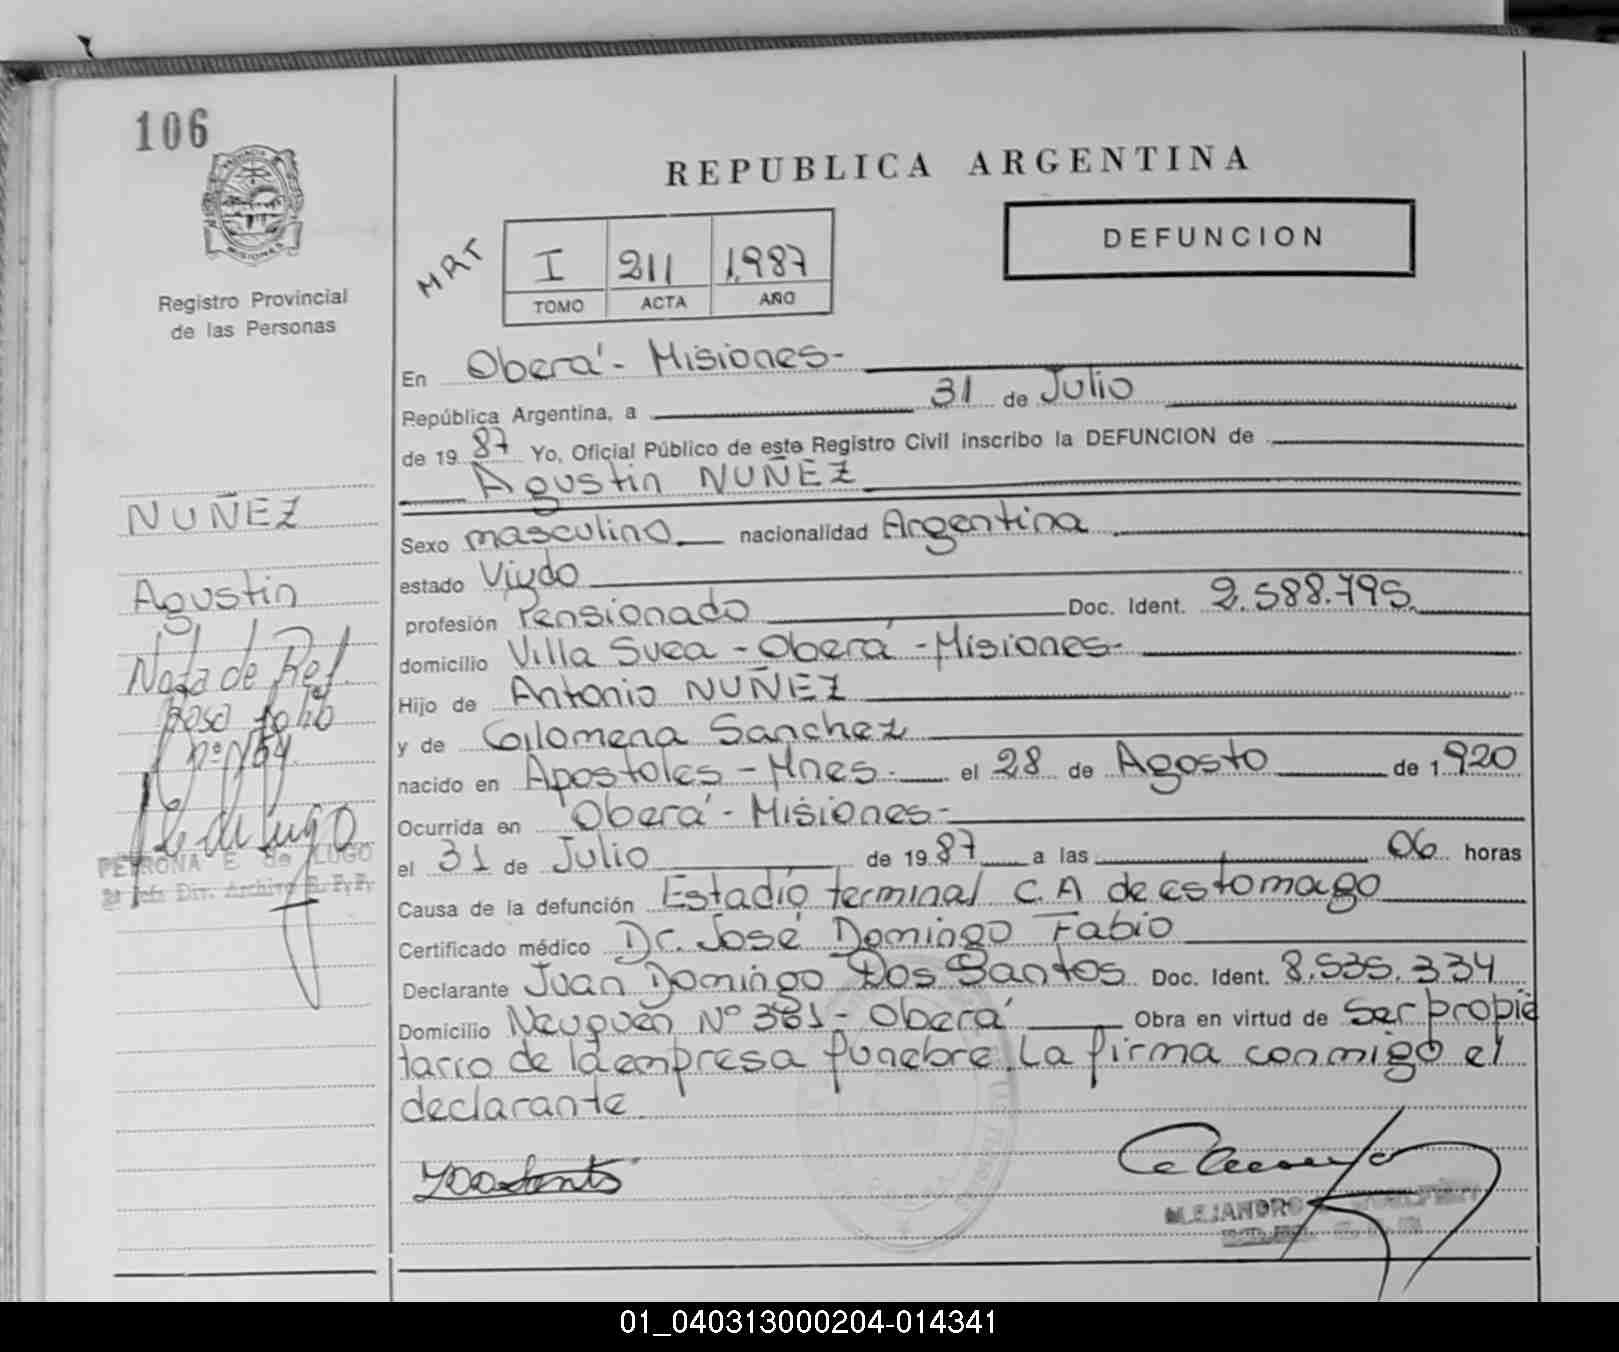 106
REPUBLICA ARGENTINA
DEFUNCION
MRT
I 211 1.987
TOMO ACTA AÑO
Registro Provincial
de las Personas
En Oberá - Misiones-
República Argentina, a 31 de Julio
de 19 87 Yo, Oficial Público de este Registro Civil inscribo la DEFUNCION de
Agustin NUÑEZ
Sexo masculino nacionalidad Argentina
estado Viudo
profesión Pensionado Doc. Ident. 2.588.795
domicilio Villa Svea - Oberá - Misiones-
Hijo de Antonio NUÑEZ
y de Gilomena Sanchez
nacido en Apostoles - Mnes. el 28 de Agosto de 1 920
Ocurrida en Oberá - Misiones-
el 31 de Julio de 19 87 a las 06 horas
Causa de la defunción Estadio terminal C.A de estomago
Certificado médico Dr. José Domingo Fabio
Declarante Juan Domingo Dos Santos Doc. Ident. 8.535.334
Domicilio Neuquén Nº 381 - Oberá Obra en virtud de ser propie
tario de la empresa funebre. La firma conmigo el
declarante.
NUÑEZ
Agustin
Nota de Ref.
Folio
PETRONA E. de LUGO
Div. Archivo
ALEJANDRO
MISIONES
01_040313000204-014341